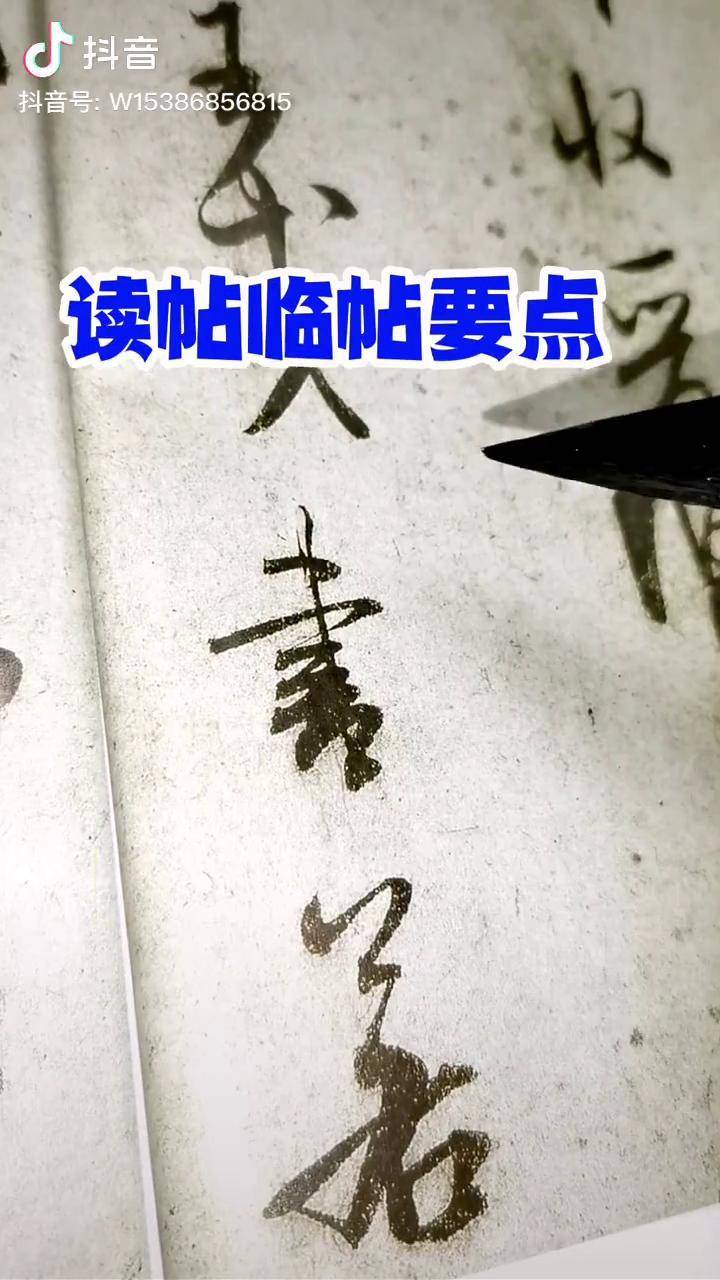 抖音
抖音号: W15386856815
读帖临帖要点
收
王戎書若